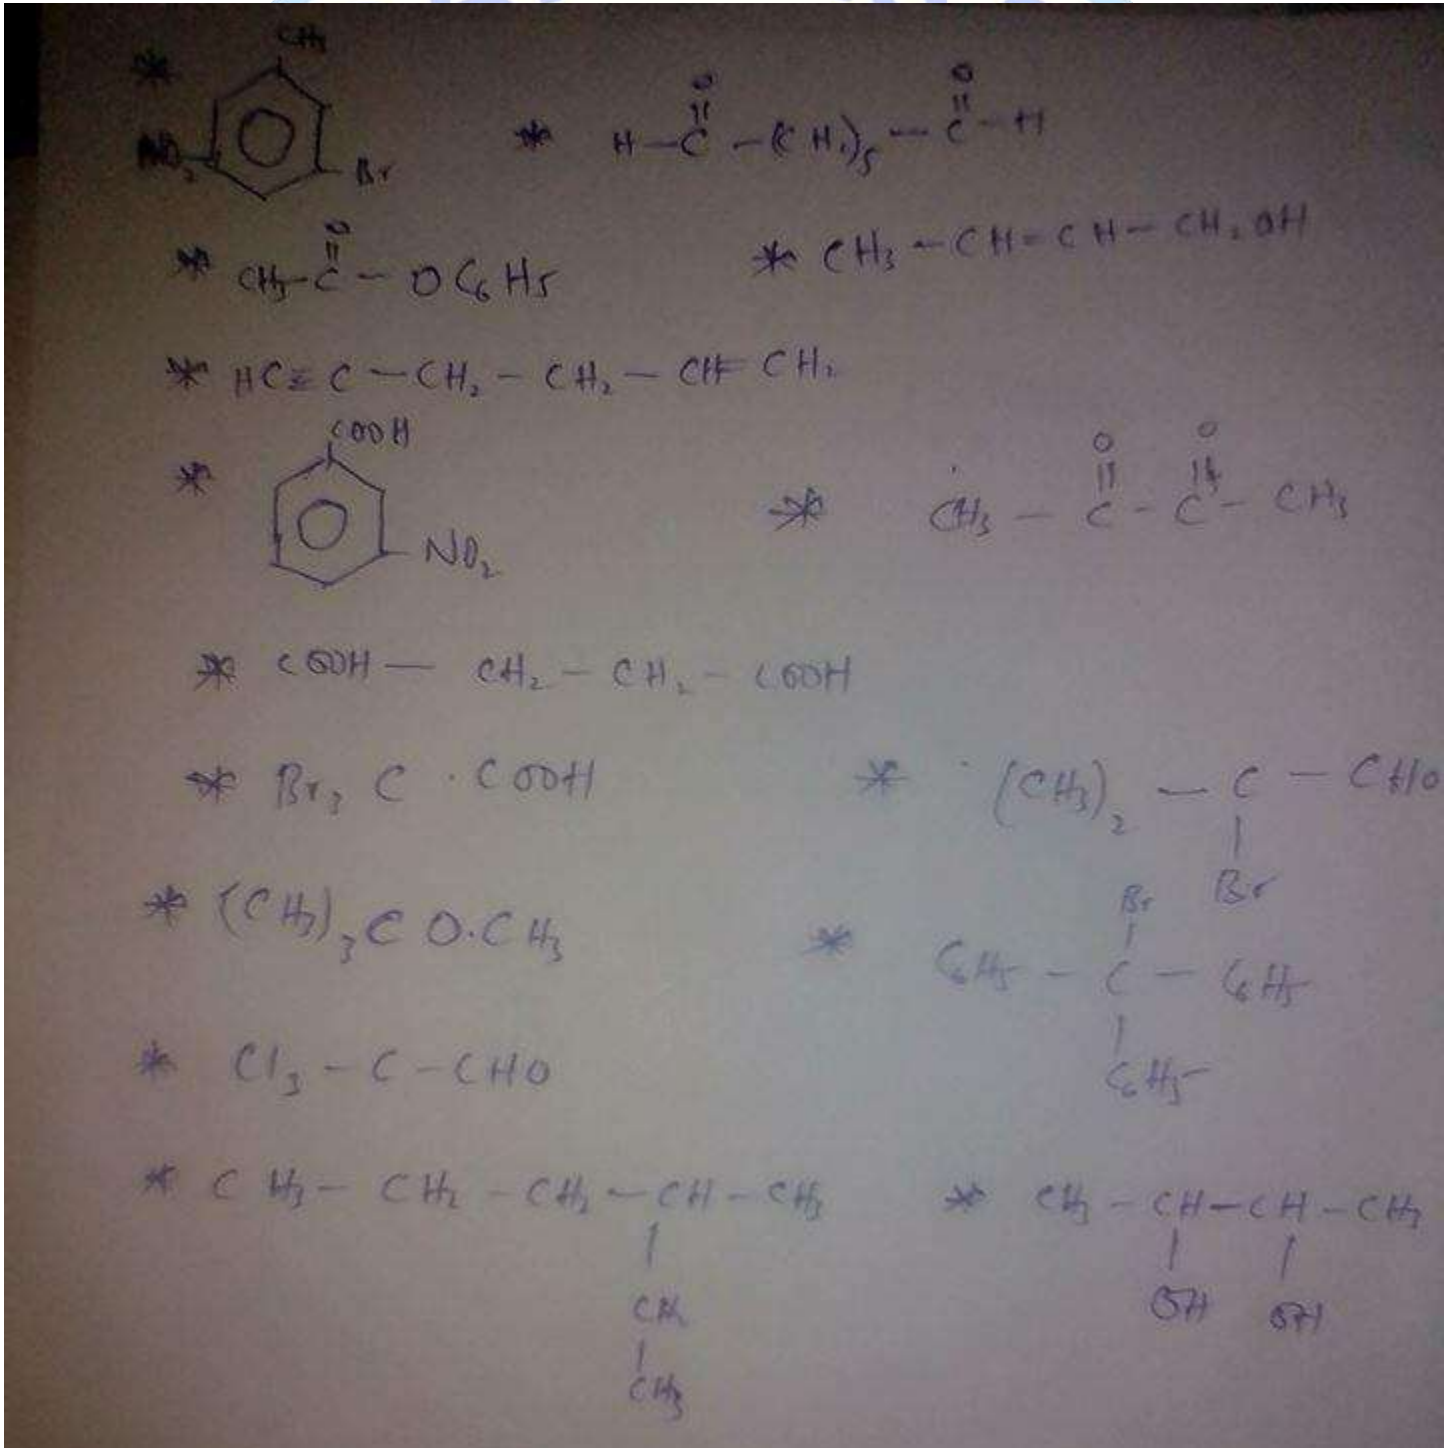 * CH3
NO2 Br
* H-C(=O)-(CH2)5-C(=O)-H
* CH3-C(=O)-OC6H5
* CH3-CH=CH-CH2OH
* HC≡C-CH2-CH2-CH=CH2
* COOH
NO2
* CH3-C(=O)-C(=O)-CH3
* COOH-CH2-CH2-COOH
* Br3C.COOH
* (CH3)2-C-CHO
|
Br
* (CH3)3CO.CH3
* Br
|
C6H5-C-C6H5
|
C6H5
* Cl3-C-CHO
* CH3-CH2-CH2-CH-CH3
|
CH2
|
CH3
* CH3-CH-CH-CH3
| |
OH OH